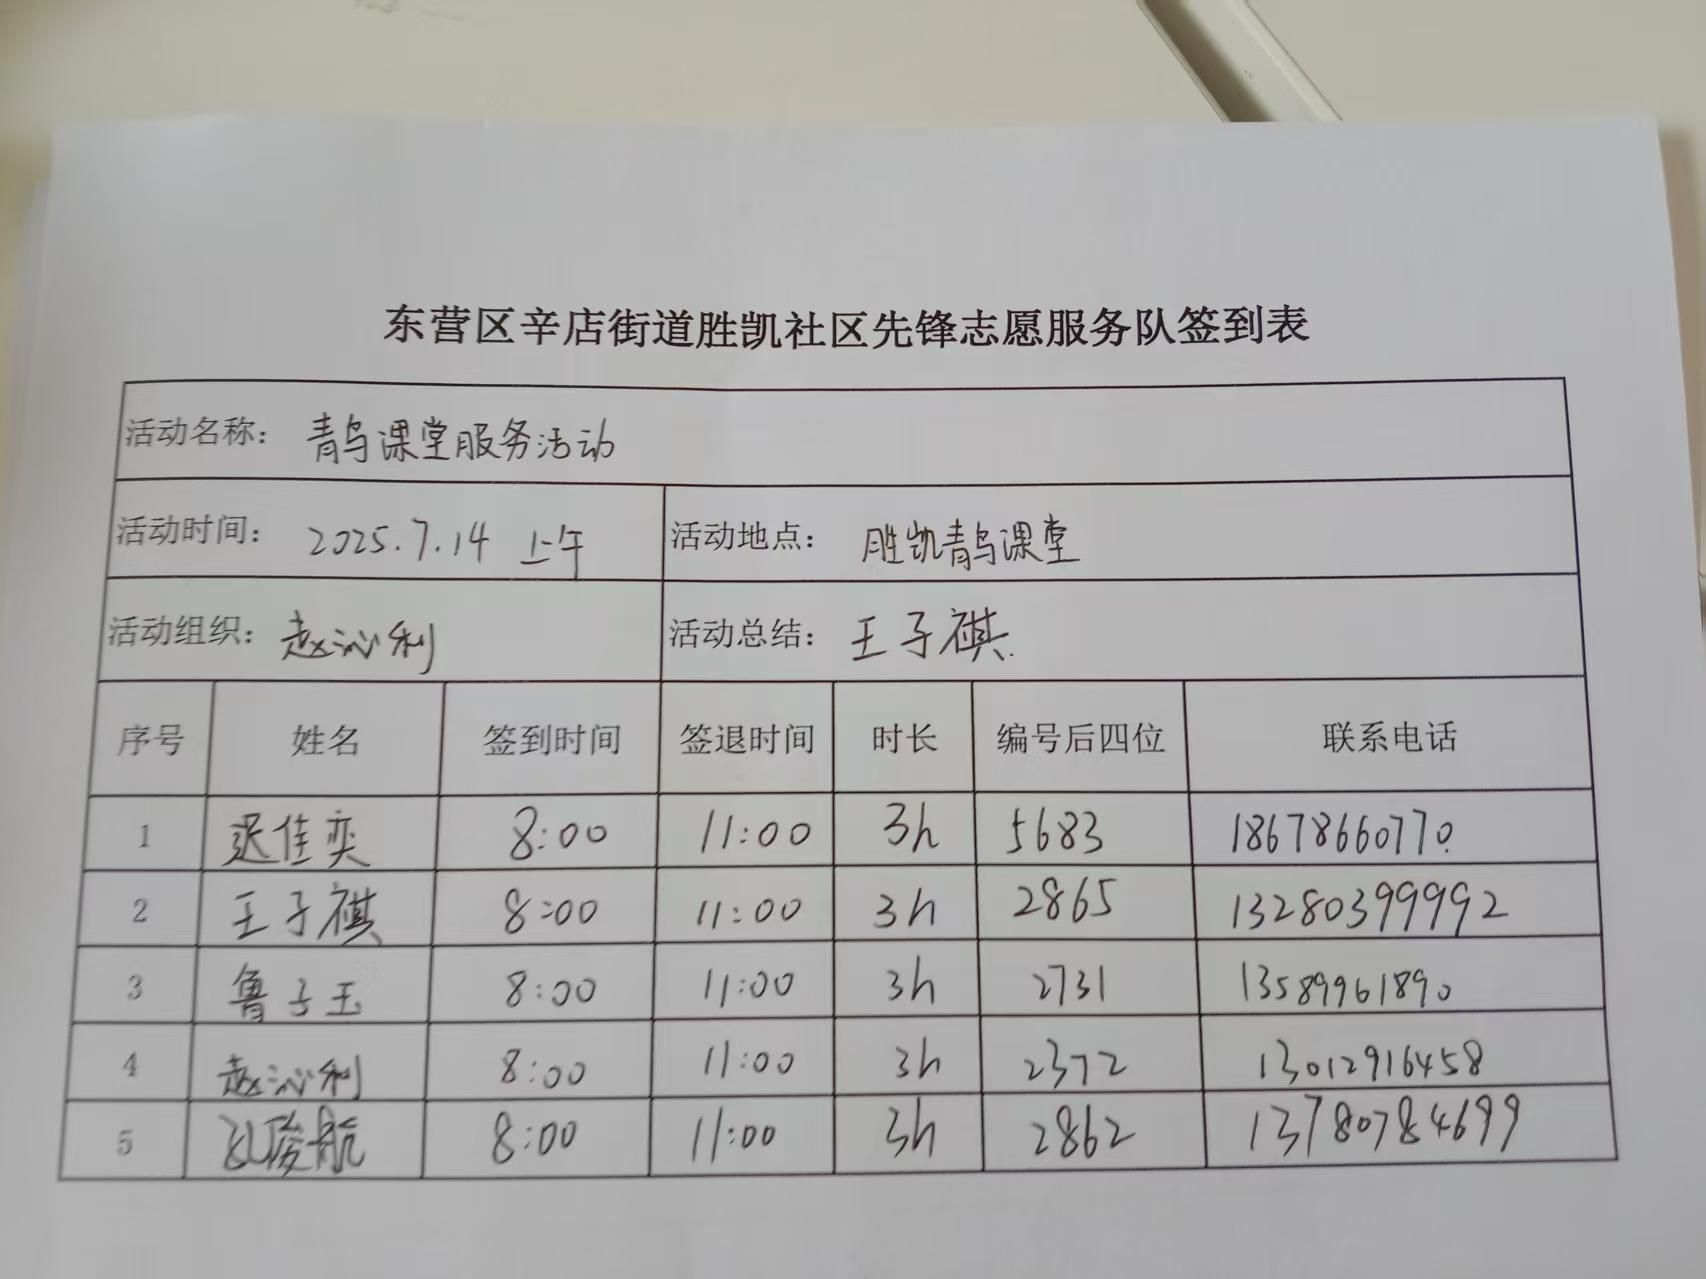 东营区辛店街道胜凯社区先锋志愿服务队签到表
活动名称： 青鸟课堂服务活动
活动时间： 2025.7.14 上午 活动地点： 胜凯青鸟课堂
活动组织： 赵沁利 活动总结： 王子祺
序号 姓名 签到时间 签退时间 时长 编号后四位 联系电话
1 迟佳奕 8:00 11:00 3h 5683 18678660770
2 王子祺 8:00 11:00 3h 2865 13280399992
3 鲁子玉 8:00 11:00 3h 2731 13589961890
4 赵沁利 8:00 11:00 3h 2372 13012916458
5 孔俊航 8:00 11:00 3h 2862 13780784699